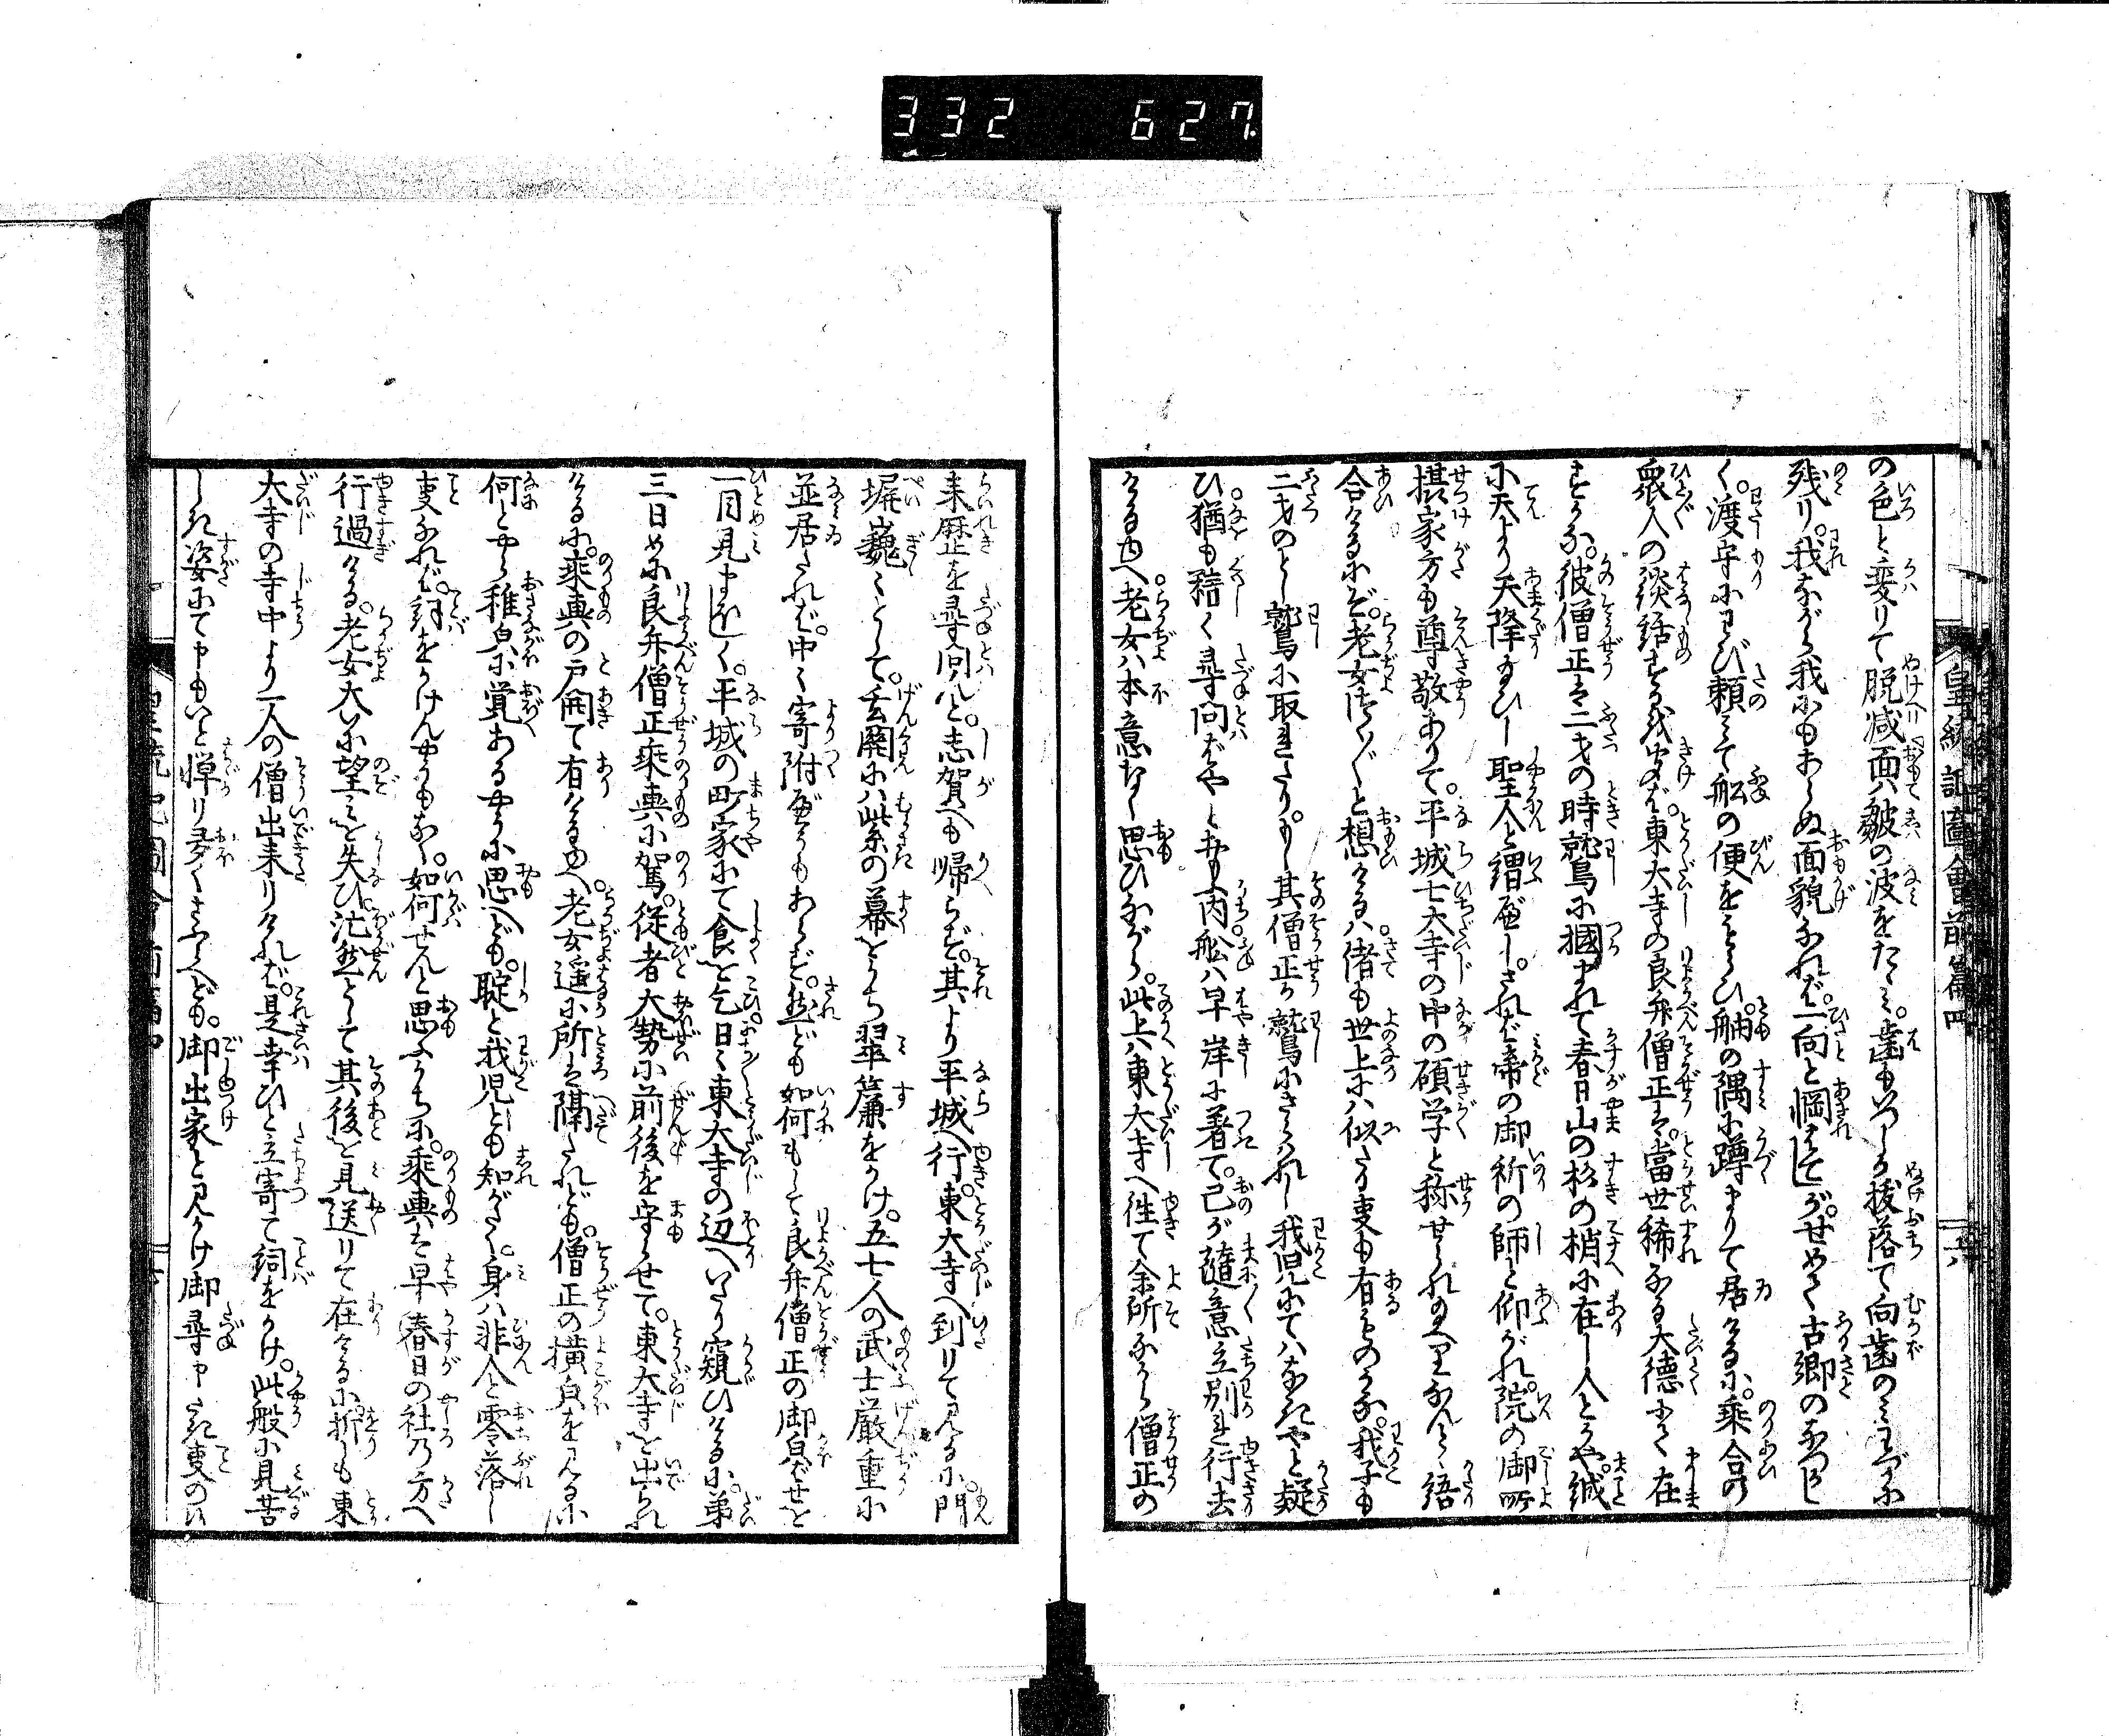 332 627
皇統記圖會前篇四
の色と変りて脱減面ハ皺の波をたゝミ。歯もいつしか抜落て向歯のミわづかに
残り。我ながら我にもあらぬ面貌なれバ。一向と惘れしが。せめて古郷のなつかし
く。渡守にわび頼ミて舩の便をこひ。舳の隅に蹲まりて居けるに。乗合の
衆人の談話するを聞バ。東大寺の良弁僧正ハ。當世稀なる大徳にて在
すが。彼僧正ハ二才の時鷲に摑まれて春日山の杉の梢に在し人とかや。誠
に天より天降給ひし聖人と謂べし。されバ帝の御祈の師と仰がれ。院の御所
摂家方も尊敬ありて。平城七大寺の中の碩学と称せられ給ふなんと語
合けるにぞ。老女つく／″＼と想ける。偖も世上にハ似たる事も有ものかな。我子も
二才のとし鷲に取れたり。もし其僧正が鷲にさらハれし我児にてハなきやと疑
ひ。猶も詰く尋問ばやと思ふ内。舩ハ早岸に著て。己が随意立別れ行去
ける内。老女ハ本意なく思ひながら。此上ハ東大寺へ往て余所ながら僧正の
来歴を尋問んと。志賀へも帰らず。其より平城へ行。東大寺へ到りて見るに。門
塀巍々として。玄関にハ紫の幕をうち翠簾をかけ。五七人の武士厳重に
並居たれバ。中々寄附べうもあらず。然ども如何もして良弁僧正の御皃ばせを
一目見まほしく。平城の町家にて食を乞。日々東大寺の辺へいたり窺ひけるに。第
三日めに良弁僧正乗輿に駕。従者大勢に前後を守らせて。東大寺を出られ
けるに。乗輿の戸開て有ける。老女遥に所を隔たれども。僧正の横皃を見るに
何とやら稚皃に覚あるやうに思へども。聢と我児とも知がたく。身ハ非人と零落し
事なれバ。詞をかけんやうもなし。如何せんと思ふうちに。乗輿ハ早春日の社の方へ
行過ける。老女大に望ミを失ひ。茫然として其後を見送りて在けるに。折しも東
大寺の寺中より一人の僧出来りけれバ。是幸ひと立寄て詞をかけ。此般に見苦
しき姿にて申もいと憚り多くさふらへども。御出家と見かけ御尋申たき事のひ